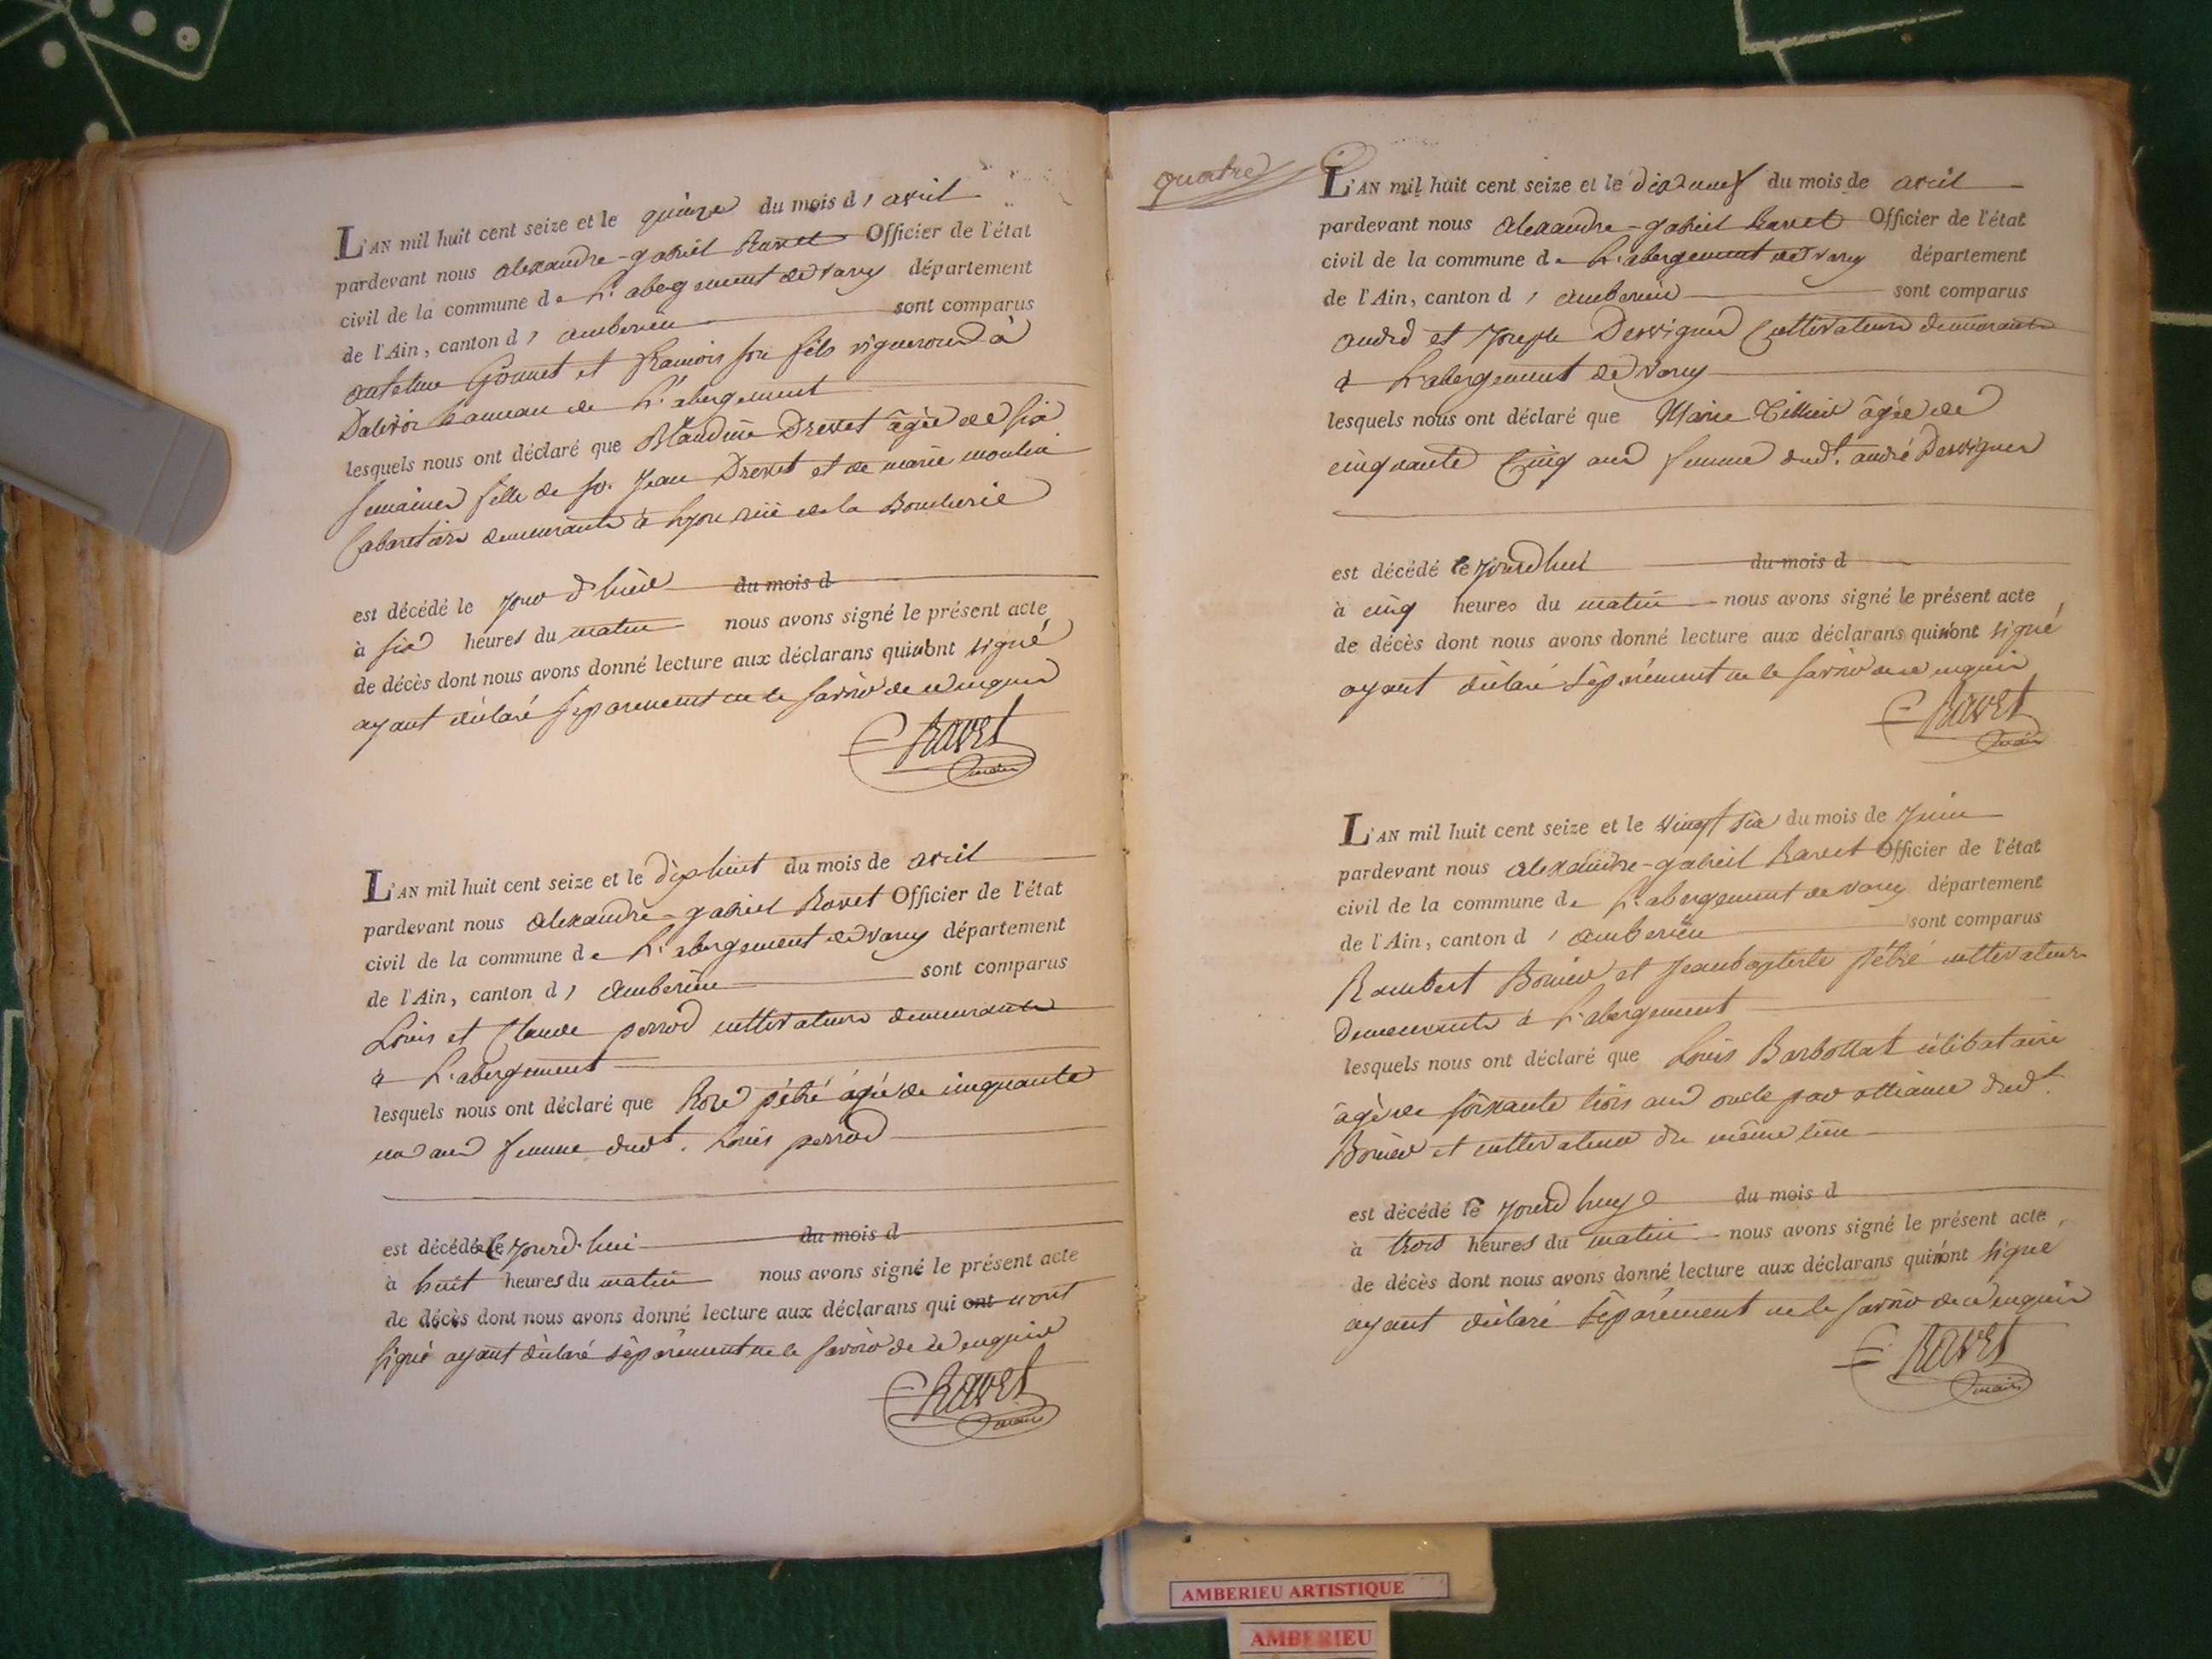 L'AN mil huit cent seize et le quinze du mois d' avril
pardevant nous alexandre-gabriel Ravet Officier de l'état
civil de la commune de L'abergement de varey département
de l'Ain, canton d' amberieu sont comparus
antelme Gonnet et francois son fils vignerons à
hameau de L'abergement
lesquels nous ont déclaré que Blandine Drevet âgée de six
semaines fille de sr. Jean Drevet et de marie moulin
Cabaretiers demeurants à Lyon rüe de la Boucherie
est décédé le jour d'hier du mois d
à six heures du matin nous avons signé le présent acte
de décès dont nous avons donné lecture aux déclarans qui n'ont signé
ayant déclaré séparement ne le savoir de ce enquis
Ravet
maire
L'AN mil huit cent seize et le dixhuit du mois de avril
pardevant nous alexandre-gabriel Ravet Officier de l'état
civil de la commune de L'abergement de varey département
de l'Ain, canton d' amberieu sont comparus
Louis et Claude perrod cultivateurs demeurants
à L'abergement
lesquels nous ont déclaré que Rose pétré agée de cinquante
un ans femme dudt. Louis perrod
est décédée le jourd'hui du mois d
à huit heures du matin nous avons signé le présent acte
de décès dont nous avons donné lecture aux déclarans qui ont n'ont
signé ayant déclaré séparément ne le savoir de ce enquis
Ravet
maire
quatre
L'AN mil huit cent seize et le dixneuf du mois de avril
pardevant nous alexandre-gabriel Ravet Officier de l'état
civil de la commune de L'abergement de varey département
de l'Ain, canton d' amberieu sont comparus
andré et joseph Dervignes Cultivateurs demeurants
à L'abergement de varey
lesquels nous ont déclaré que Marie âgée de
cinquante Cinq ans femme dudt. andré Dervignes
est décédé le jourdhui du mois d
à cinq heures du matin nous avons signé le présent acte
de décès dont nous avons donné lecture aux déclarans qui n'ont signé
ayant déclaré séparément ne le savoir de ce enquis
Ravet
maire
L'AN mil huit cent seize et le vingt six du mois de juin
pardevant nous alexandre-gabriel Ravet Officier de l'état
civil de la commune de L'abergement de varey département
de l'Ain, canton d' amberieu sont comparus
Rambert Bonier et jeanbaptiste pétré cultivateurs
demeurants à L'abergement
lesquels nous ont déclaré que Louis Barbollat célibataire
âgé de soixante trois ans oncle par alliance dudt.
Bonier et cultivateur du même lieu
est décédé le jourdhuy du mois d
à trois heures du matin nous avons signé le présent acte
de décès dont nous avons donné lecture aux déclarans qui n'ont signé
ayant déclaré séparément ne le savoir de ce enquis
Ravet
maire
AMBERIEU ARTISTIQUE
AMBERIEU